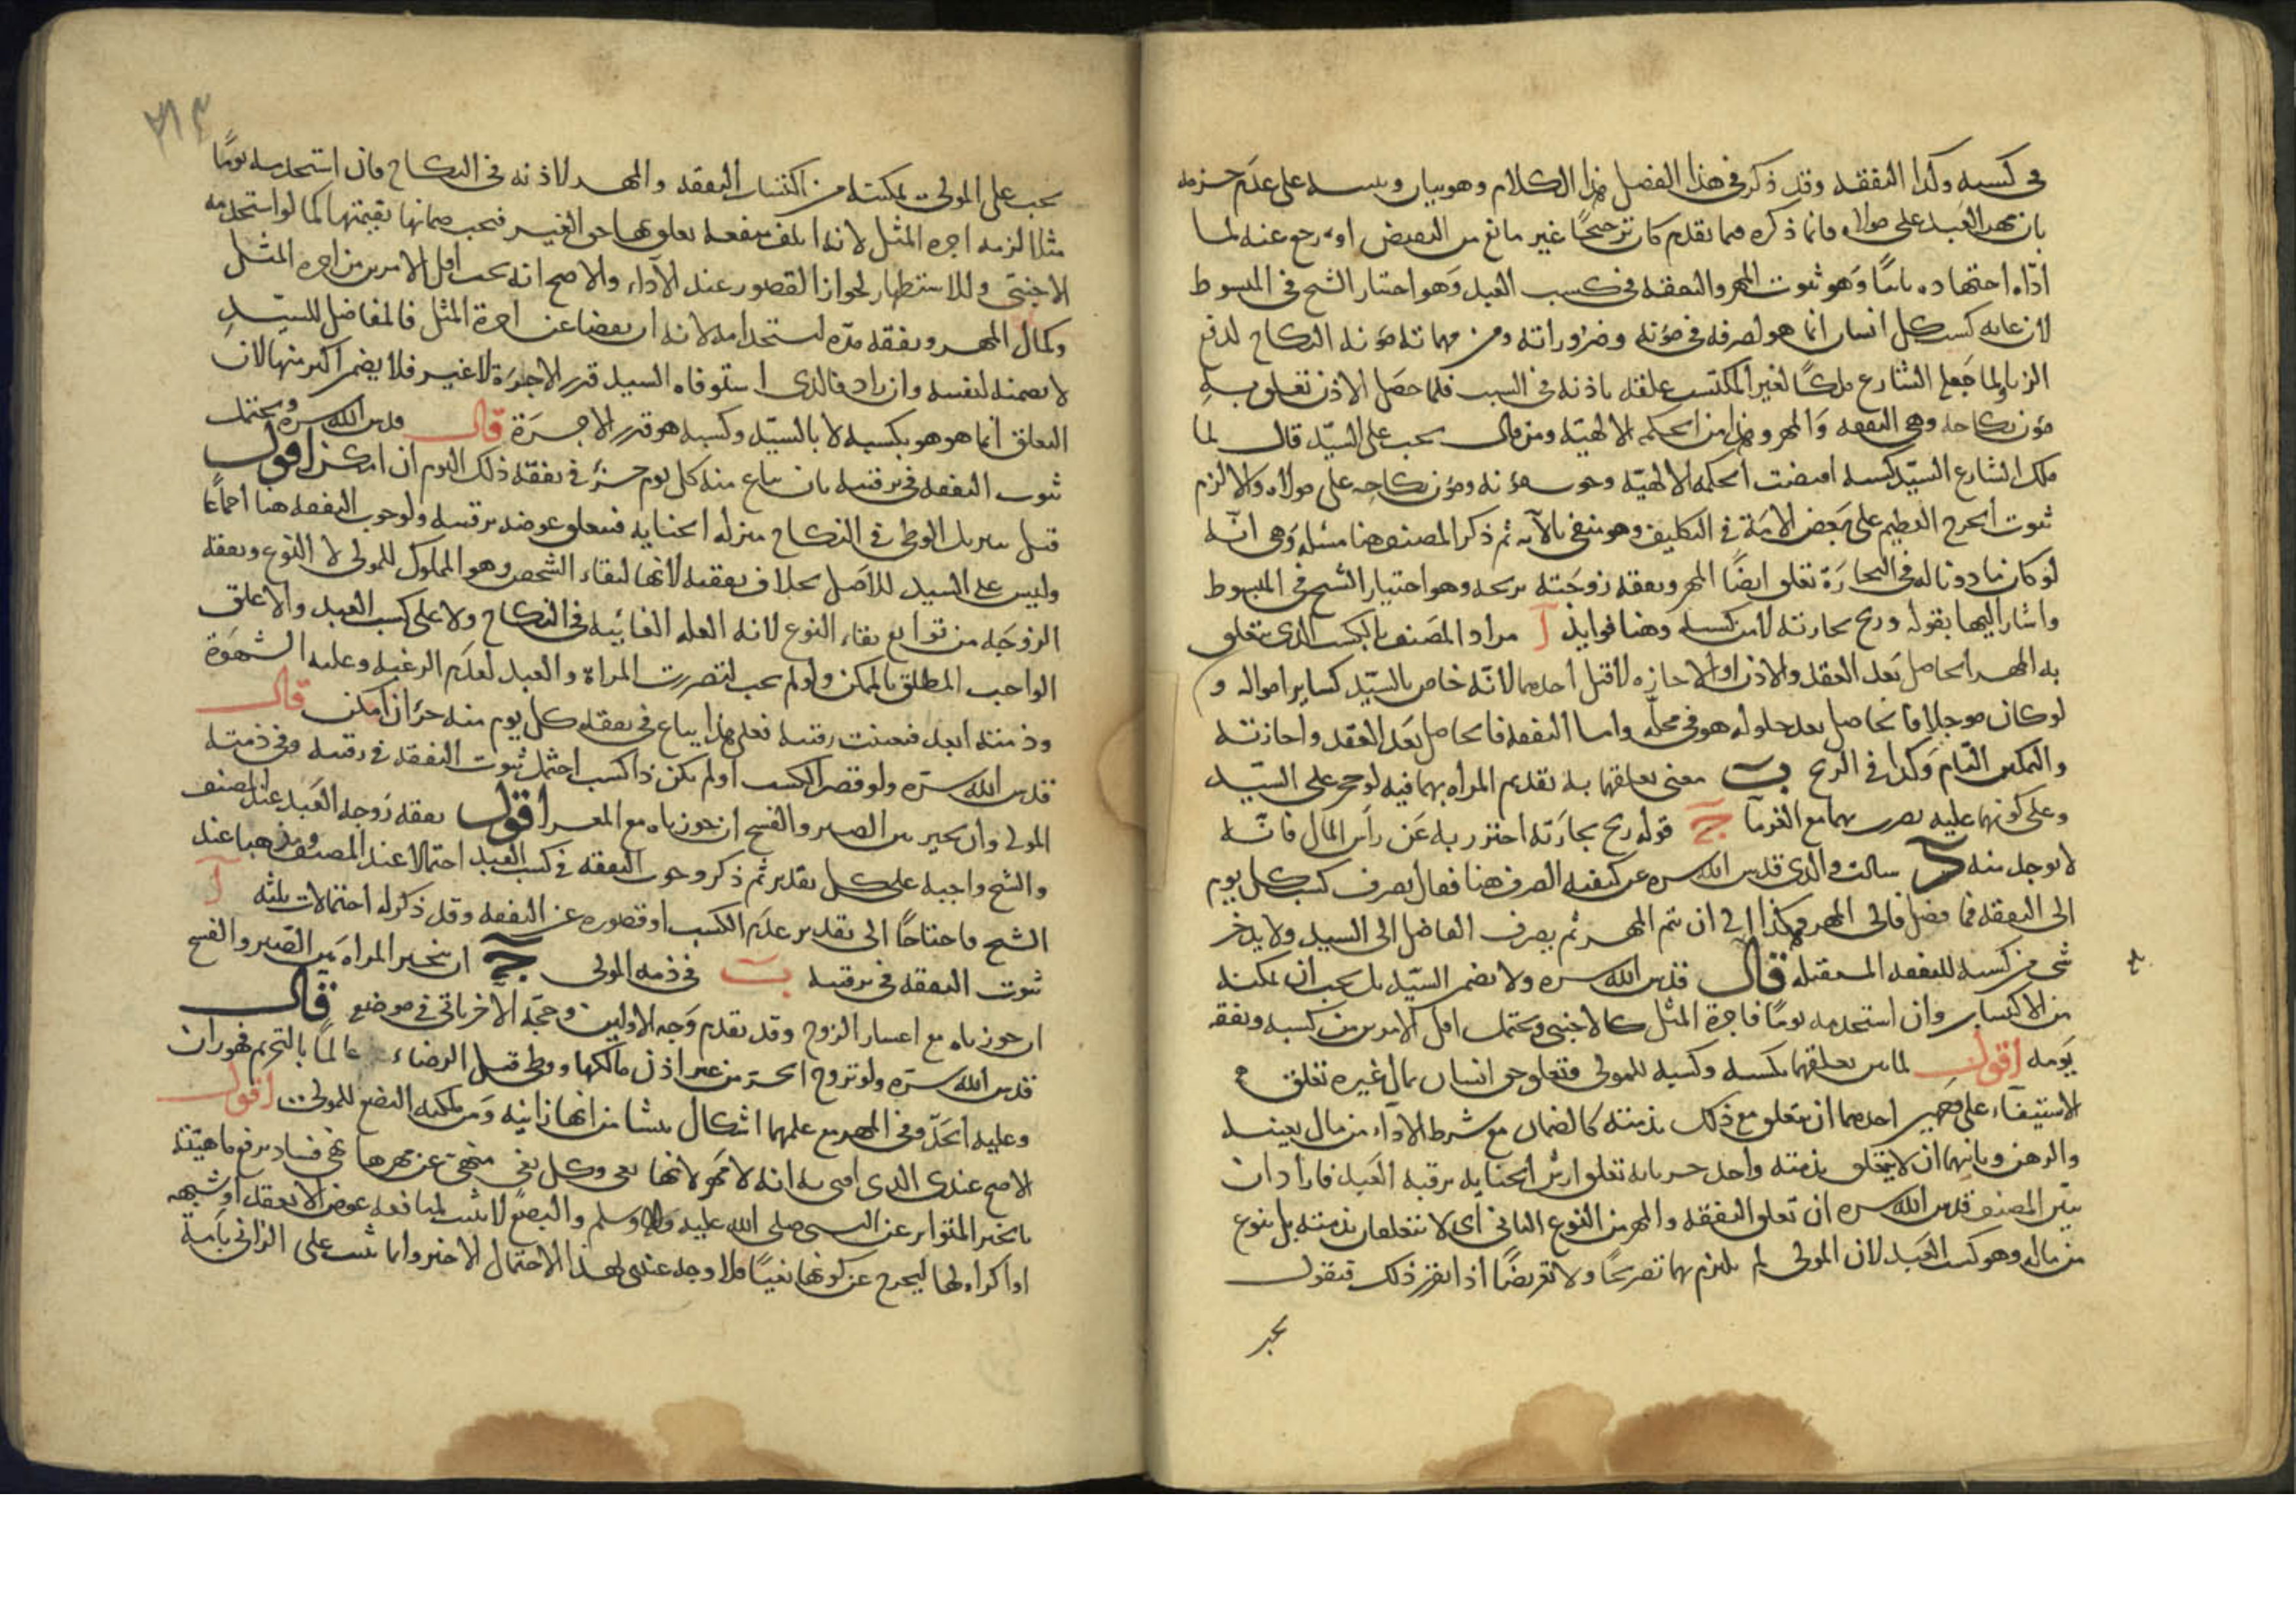 في كسبه وكذا النفقة وقد ذكر في هذا الفصل هذا الكلام وهو بيان على عدم جزمه
بان مهر العبد على مولاه وانما ذكره فيما تقدم كان ترجيحًا غير مانع من النقيض او رجع عنه لما
اداه اجتهاده ثانيًا وهو ثبوت المهر والنفقة في كسب العبد وهو اختيار الشيخ في المبسوط
لان غاية كسب كل انسان انما هو لصرفه في مؤنه وضروراته ومن مهماته مؤنة النكاح لدفع
الزنا ولما جعل الشارع ملكًا لغير المكتسب علقه باذنه في السبب فلما حصل الاذن تعلق به
مؤن نكاحه وهي النفقة والمهر وهذا من الحكمة الالهيّة ومن قال يجب على السيّد قال لما
ملك الشارع السيّد كسبه اقتضت الحكمة الالهيّة وجوب مؤنه ومؤن نكاحه على مولاه والا لزم
ثبوت الحرج العظيم على بعض الامة في التكليف وهو منفي بالآية ثم ذكر المصنف هنا مسئلة وهي انّه
لو كان ماذونا له في التجارة تعلق ايضًا المهر ونفقة زوجته بربحه وهو اختيار الشيخ في المبسوط
واشار اليها بقوله وربح تجارته لانه من كسبه وهنا فوايد آ مراد المصنف بالكسب الذي يتعلق
به المهر الحاصل بعد العقد والاذن او الاجازة لا قبل احدهما لانّه خاص بالسيّد كساير امواله و
لو كان موجلا فالحاصل بعد حلوله هو في محلّه واما النفقة فالحاصل بعد العقد واجازته
والتمكين التام وكذا في الربح ب معنى تعلقهما به تقديم المراة بهما فيه لو حجر على السيّد
وعلى كونهما عليه يضرب بهما مع الغرما ج قوله ربح تجارته احترز به عن رأس المال فانّه
لا يوخذ منه د سالت والدي قدس الله سره عن كيفية الصرف هنا فقال يصرف كسب كل يوم
الى النفقة فما فضل فالى المهر وهكذا الى ان يتم المهر ثم يصرف الفاضل الى السيد ولا يدخر
شي من كسبه للنفقة المستقبلة قال قدس الله سره ولا يضمن السيّد بل يجب ان يمكنه
من الاكتساب وان استخدمه يومًا فاجرة المثل كالاجنبي ويحتمل اقل الامرين من كسبه ونفقة
يومه اقول لما بين تعلقهما بكسبه وكسبه للمولى وتعلق حق انسان بمال غيره تعلق
الاستيفاء على وجهين احدهما ان يتعلق مع ذلك بذمته كالضمان مع شرط الاداء من مال بعينه
والرهن وثانيهما ان لا يتعلق بذمته واحد تعلق ارش الجناية برقبة العبد فاراد ان
يبيّن المصنف قدس الله سره ان تعلق النفقة والمهر من النوع الثاني اى لا يتعلقان بذمته بل بنوع
من ماله وهو كسب العبد لان المولى لم يلتزم بهما تصريحًا ولا تعريضًا اذا تقرر ذلك فنقول
يجب
يجب على المولى تمكينه من اكتساب النفقة والمهر لاذنه في النكاح فان استخدمه يومًا
مثلا لزمه اجرة المثل لانه اتلف منفعة تعلق بها حق الغير فيجب ضمانها بقيمتها كما لو استخدمه
الاجنبي وللاستظهار لجواز القصور عند الآداء والاصح انه يجب اقل الامرين من اجرة المثل
وكمال المهر ونفقة مدّة استخدامه لانه ان نقصا عن اجرة المثل فالفاضل للسيّد
لا يضمنه لنفسه وان زاد فالذي استوفاه السيد قدر الاجرة لا غير فلا يضمن اكثر منها لان
التعلق انما هو بكسبه لا بالسيّد وكسبه هو قدر الاجرة قال قدس الله سره ويحتمل
ثبوت النفقة في رقبته بان يباع منه كل يوم جزء في نفقة ذلك اليوم ان امكن اقول
قيل ينزل الوطى في النكاح منزلة الجناية فيتعلق عوضه برقبته ولوجوب النفقة هنا اجماعًا
وليس على السيد للاصل بخلاف نفقته لانها لبقاء الشخص وهو المملوك للمولى لا النوع ونفقة
الزوجة من توابع بقاء النوع لانه العلة الغائية في النكاح ولا على كسب العبد والا علق
الواجب المطلق بالممكن ولو لم يجب لتضررت المراة والعبد لعدم الرغبة وغلبة الشهوة
وذمته ابعد فتعينت رقبته فعلى هذا يباع في نفقته كل يوم منه جزء ان امكن قال
قدس الله سرّه ولو قصر الكسب او لم يكن ذا كسب احتمل ثبوت النفقة في رقبته وفي ذمة
المولى وان يخير بين الصبر والفسخ ان جوزناه مع العسر اقول نفقة زوجة العبد عند المصنف
والشيخ واجبة على كل تقدير ثم ذكر وجوب النفقة في كسب العبد احتمالا عند المصنف ومذهبا عند
الشيخ فاحتاجا الى تقدير عدم الكسب او قصوره عن النفقة وقد ذكر له احتمالات ثلثة آ
ثبوت النفقة في رقبته ب في ذمة المولى ج ان يتخير المراة بين الصبر والفسخ
ان جوزناه مع اعسار الزوج وقد تقدم وجه الاولين وحجة الاخر ياتي في موضع قال
قدس الله سرّه ولو تزوج الحر من غير اذن مالكها ووطى قبل الرضاء عالمًا بالتحريم فهو زان
وعليه الحدّ وفي المهر مع علمهما اشكال ينشا من انها زانية ومن ملكية البضع للمولى اقول
الاصح عندى الذي افتى به انه لا مهر لانها بغى وكل بغى منهي عن مهرها نهي فساد يرفع ماهيّته
بالخبر المتواتر عن النبي صلى الله عليه واله وسلم والبضع لا يثبت لمنافعه عوض الا بعقد او شبهه
او اكراه لها ليخرج عن كونها بغيًا فلا وجه عندى لهذا الاحتمال الاخير وانما يثبت على الزاني بامة